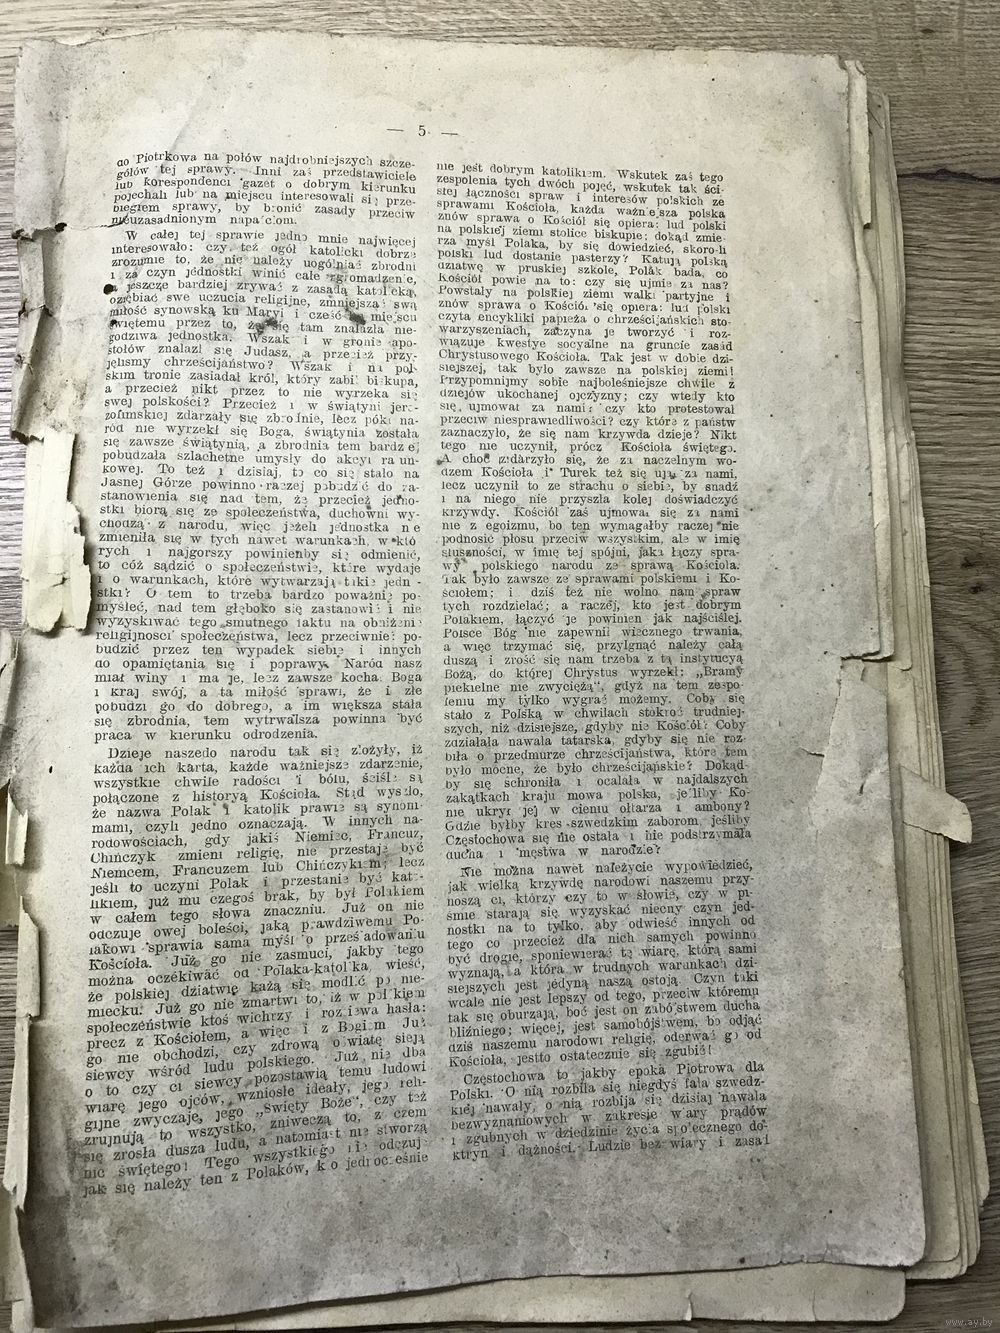 — 5 —
do Piotrkowa na połów najdrobniejszych szcze-
gółów tej sprawy. Inni zaś przedstawiciele
lub korespondenci gazet o dobrym kierunku
pojechali lub na miejscu interesowali się prze-
biegiem sprawy, by bronić zasady przeciw
nieuzasadnionym napaściom.
W całej tej sprawie jedno mnie najwięcej
interesowało: czy też ogół katolicki dobrze
zrozumie to, że nie należy uogólniać zbrodni
i za czyn jednostki winić całe zgromadzenie,
a jeszcze bardziej zrywać z zasadą katolicką,
oziębiać swe uczucia religijne, zmniejszać swą
miłość synowską ku Maryi i cześć ku miejscu
świętemu przez to, że się tam znalazła nie-
godziwa jednostka. Wszak i w gronie apo-
stołów znalazł się Judasz, a przecież przy-
jęliśmy chrześcijaństwo? Wszak i na pol-
skim tronie zasiadał król, który zabił biskupa,
a przecież nikt przez to nie wyrzeka się
swej polskości? Przecież i w świątyni jero-
zolimskiej zdarzały się zbrodnie, lecz póki na-
ród nie wyrzekł się Boga, świątynia została
się zawsze świątynią, a zbrodnia tem bardziej
pobudzała szlachetne umysły do akcyi ratun-
kowej. To też i dzisiaj, to co się stało na
Jasnej Górze powinno raczej pobudzić do za-
stanowienia się nad tem, że przecież jedno-
stki biorą się ze społeczeństwa, duchowni wy-
chodzą z narodu, więc jeżeli jednostka nie
zmieniła się w tych nawet warunkach, w któ-
rych i najgorszy powinienby się odmienić,
to cóż sądzić o społeczeństwie, które wydaje
i o warunkach, które wytwarzają takie jedno-
stki? O tem to trzeba bardzo poważnie po-
myśleć, nad tem głęboko się zastanowić i nie
wyzyskiwać tego smutnego faktu na obniżenie
religijności społeczeństwa, lecz przeciwnie: po-
budzić przez ten wypadek siebie i innych
do opamiętania się i poprawy. Naród nasz
miał winy i ma je, lecz zawsze kocha Boga
i kraj swój, a ta miłość sprawi, że i złe
pobudzi go do dobrego, a im większa stała
się zbrodnia, tem wytrwalsza powinna być
praca w kierunku odrodzenia.
Dzieje naszedo narodu tak się złożyły, iż
każda ich karta, każde ważniejsze zdarzenie,
wszystkie chwile radości i bólu, ściśle są
połączone z historyą Kościoła. Stąd wyszło,
że nazwa Polak i katolik prawie są synoni-
mami, czyli jedno oznaczają. W innych na-
rodowościach, gdy jakiś Niemiec, Francuz,
Chińczyk zmieni religię, nie przestaje być
Niemcem, Francuzem lub Chińczykiem; lecz
jeśli to uczyni Polak i przestanie być kato-
likiem, już mu czegoś brak, by był Polakiem
w całem tego słowa znaczniu. Już on nie
odczuje owej boleści, jaką prawdziwemu Po-
lakowi sprawia sama myśl o prześladowaniu
Kościoła. Już go nie zasmuci, jakby tego
można oczekiwać od Polaka-katolika, wieść,
że polskiej dziatwie każą się modlić po nie-
miecku. Już go nie zmartwi to, iż w polskiem
społeczeństwie ktoś wichrzy i rozsiewa hasła:
precz z Kościołem, a więc i z Bogiem Już
go nie obchodzi, czy zdrową oświatę sieją
siewcy wśród ludu polskiego. Już nie dba
o to czy ci siewcy pozostawią temu ludowi
wiarę jego ojców, wzniosłe ideały, jego reli-
gijne zwyczaje, jego „Święty Boże", czy też
zrujnują to wszystko, zniweczą to, z czem
się zrosła dusza ludu, a natomiast nie stworzą
nic świętego! Tego wszystkiego nie odczuje
jak się należy ten z Polaków, kto jednocześnie
nie jest dobrym katolikiem. Wskutek zaś tego
zespolenia tych dwóch pojęć, wskutek tak ści-
słej łączności spraw i interesów polskich ze
sprawami Kościoła, każda ważniejsza polska
znów sprawa o Kościół się opiera: lud polski
na polskiej ziemi stolice biskupie; dokąd zmie-
rza myśl Polaka, by się dowiedzieć, skoro-li
polski lud dostanie pasterzy? Katują polską
dziatwę w pruskiej szkole, Polak bada, co
Kościół powie na to: czy się ujmie za nas?
Powstały na polskiej ziemi walki partyjne i
znów sprawa o Kościół się opiera: lud polski
czyta encykliki papieża o chrześcijańskich sto-
warzyszeniach, zaczyna je tworzyć i roz-
wiązuje kwestye socyalne na gruncie zasad
Chrystusowego Kościoła. Tak jest w dobie dzi-
siejszej, tak było zawsze na polskiej ziemi!
Przypomnijmy sobie najboleśniejsze chwile z
dziejów ukochanej ojczyzny; czy wtedy kto
się ujmował za nami: czy kto protestował
przeciw niesprawiedliwości? czy które z państw
zaznaczyło, że się nam krzywda dzieje? Nikt
tego nie uczynił, prócz Kościoła świętego.
A choć zdarzyło się, że za naczelnym wo-
dzem Kościoła i Turek też się ujął za nami,
lecz uczynił to ze strachu o siebie, by snadź
i na niego nie przyszła kolej doświadczyć
krzywdy. Kościół zaś ujmował się za nami
nie z egoizmu, bo ten wymagałby raczej nie
podnosić głosu przeciw wszystkim, ale w imię
słuszności, w imię tej spójni, jaka łączy spra-
wy polskiego narodu ze sprawą Kościoła.
Tak było zawsze ze sprawami polskiemi i Ko-
ściołem; i dziś też nie wolno nam spraw
tych rozdzielać; a raczej, kto jest dobrym
Polakiem, łączyć je powinien jak najściślej.
Polsce Bóg nie zapewnił wiecznego trwania,
a więc trzymać się, przylgnąć należy całą
duszą i zróść się nam trzeba z tą instytucyą
Bożą, do której Chrystus wyrzekł: „Bramy
piekielne nie zwyciężą", gdyż na tem zespo-
leniu my tylko wygrać możemy. Coby się
stało z Polską w chwilach stokroć trudniej-
szych, niż dzisiejsze, gdyby nie Kościół? Coby
zdziałała nawała tatarska, gdyby się nie roz-
biła o przedmurze chrześcijaństwa, które tem
było mocne, że było chrześcijańskie? Dokąd-
by się schroniła i ocalała w najdalszych
zakątkach kraju mowa polska, jeśliby Ko-
nie ukrył jej w cieniu ołtarza i ambony?
Gdzie byłby kres szwedzkim zaborom, jeśliby
Częstochowa się nie ostała i nie podstrzymała
ducha i męstwa w narodzie?
Nie można nawet należycie wypowiedzieć,
jak wielką krzywdę narodowi naszemu przy-
noszą ci, którzy czy to w słowie, czy w pi-
śmie starają się wyzyskać niecny czyn jed-
nostki na to tylko, aby odwieść innych od
tego co przecież dla nich samych powinno
być drogie, sponiewierać tę wiarę, którą sami
wyznają, a która w trudnych warunkach dzi-
siejszych jest jedyną naszą ostoją. Czyn taki
wcale nie jest lepszy od tego, przeciw któremu
tak się oburzają, boć jest on zabójstwem ducha
bliźniego; więcej, jest samobójstwem, bo odjąć
dziś naszemu narodowi religię, oderwać go od
Kościoła, jestto ostatecznie się zgubić!
Częstochowa to jakby epoka Piotrowa dla
Polski. O nią rozbiła się niegdyś fala szwedz-
kiej nawały, o nią rozbija się dzisiaj nawała
bezwyznaniowych w zakresie wiary prądów
i zgubnych w dziedzinie życia społecznego do-
ktryn i dążności. Ludzie bez wiary i zasad
www.ay.by